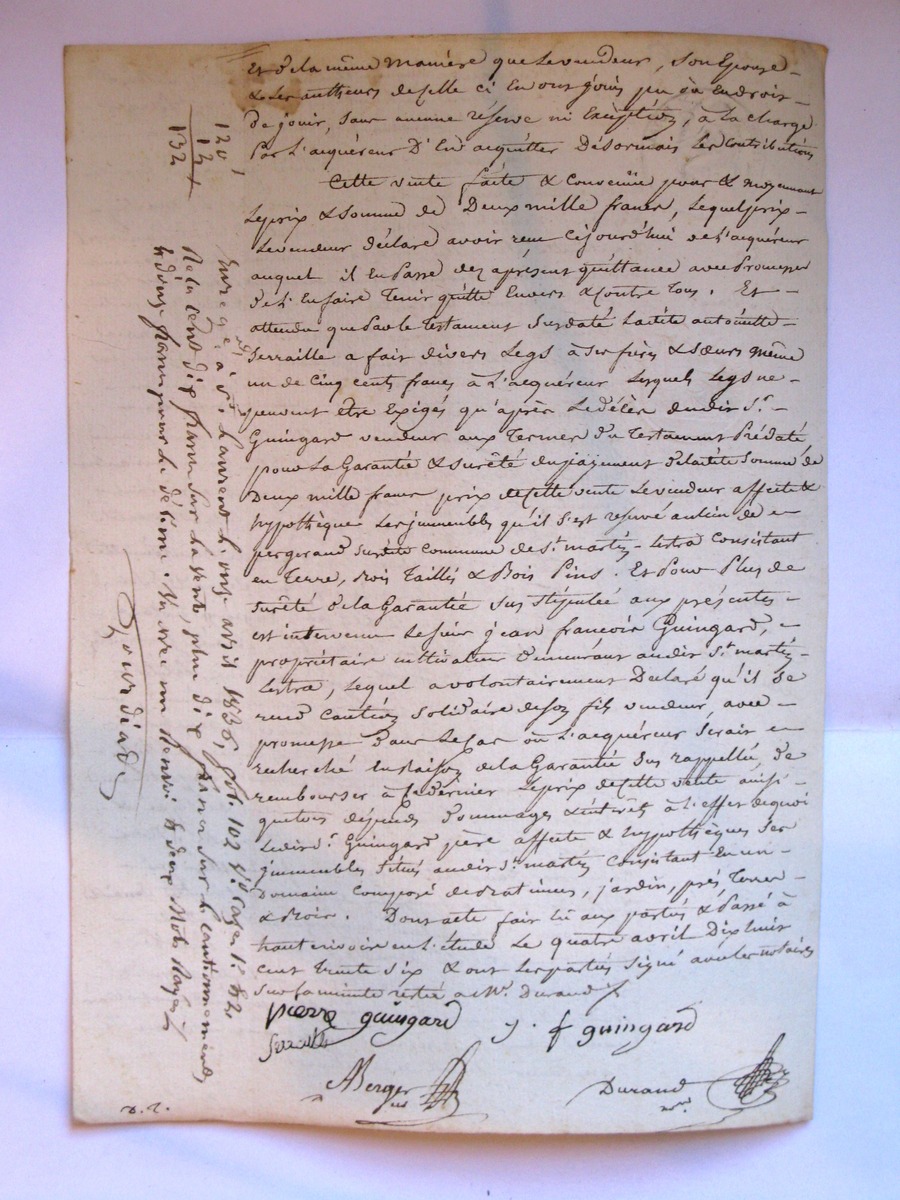 Et de la même maniére que le vendeur, son Epouse -
& les autheurs de celle ci En ont joüi pu ou En droit -
de jouir, sans aucune réserve ni Exception, à la charge
Par L'acquéreur D'En acquitter Désormais Les Contributions
Cette vente faite & Convenüe pour & moyennant
Le prix & somme de Deux mille francs, Lequel prix -
Le vendeur déclare avoir reçu Cejourd'hui de L'acquéreur
auquel il En Passe dez aprésent quittance avec Promesse
de L'En faire Tenir quitte Envers & Contre Tous. Et -
attendu que Par le Testament Susdaté Ladite antoinette -
Serraille a fait divers Legs à ses frères & sœurs même
un de Cinq cents francs à L'acquéreur Lesquels Legs ne -
peuvent être Exigés qu'après Le décès dudit Sr. -
Guingard vendeur aux Termes du Testament Prédaté
pour La Garantie & sureté du payement de ladite Somme de
Deux mille francs prix de cette vente Le vendeur affecte &
hypothèque Les immeubles qu'il s'est reservé au lieu de -
pergerand susdite Commune de St. martin - Lestra Consistant
en Terre, Bois Taillis & Bois Pins. Et Pour Plus de
sureté de la Garantie sus stipulée aux présentes -
est intervenu Le sieur jean francois Guingard, -
propriétaire cultivateur demeurant audit St. martin -
Lestra, Lequel a volontairement Déclaré qu'il se
rend Caution Solidaire de son fils vendeur, avec -
promesse dans Le Cas où L'acquéreur serait -
recherché En raison de la Garantie sus rappellée, de
rembourser à Ce dernier Le prix de cette vente ainsi -
que tous dépends dommages & intérêts à L'effet de quoi
Ledit Sr. Guingard père affecte & hypothèques ses
immeubles situés audit St. martin Consistant En un -
Domaine Composé de Batimens, jardin, prés, Terres -
& Bois. Dont acte fait lu aux parties & Passé à
haut rivoire en L'étude Le quatre avril Dix huit
cent trente six & ont Les parties signé avec Les notaires
sur la minute restée a Me. Durand
pierre guingard
j. f guingard
Serraille
Berger
Durand
120,
12
132
Enregé. à St. Laurent le onze avril 1836, fo. 102 Vo. Cases 1re. & 2e.
Reçu Cent dix francs sur la vente, plus dix francs sur le Cautionnement
& douze francs pour le décime. Vu avec un Renvoi & deux Mots Rayés